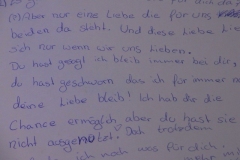 (1) Aber nur eine Liebe die für uns
beiden da steht. Und diese Liebe
sich nur wenn wir uns Lieben.
Du hast gesagt ich bleib immer bei dir,
du hast geschworen das ich für immer
deine Liebe bleib! Ich hab dir die
Chance ermöglich aber du hast sie
nicht ausgenutzt Dah trotzdem
ich mach was für dich.